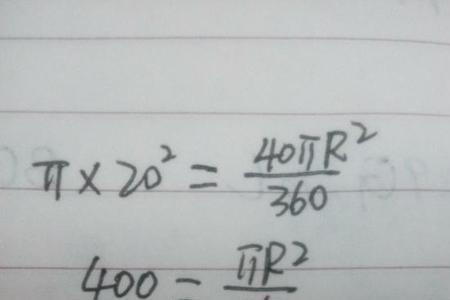 π×20²=40πR²/360
400=πR²/